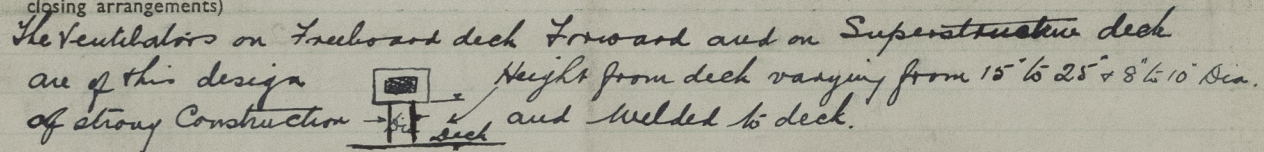 closing arrangements)
The Ventilators on Freeboard deck Forward and on Superstructure deck
are of this design Height from deck varying from 15" to 25" & 8" to 10" Dia.
of strong Construction Dia Deck and Welded to deck.